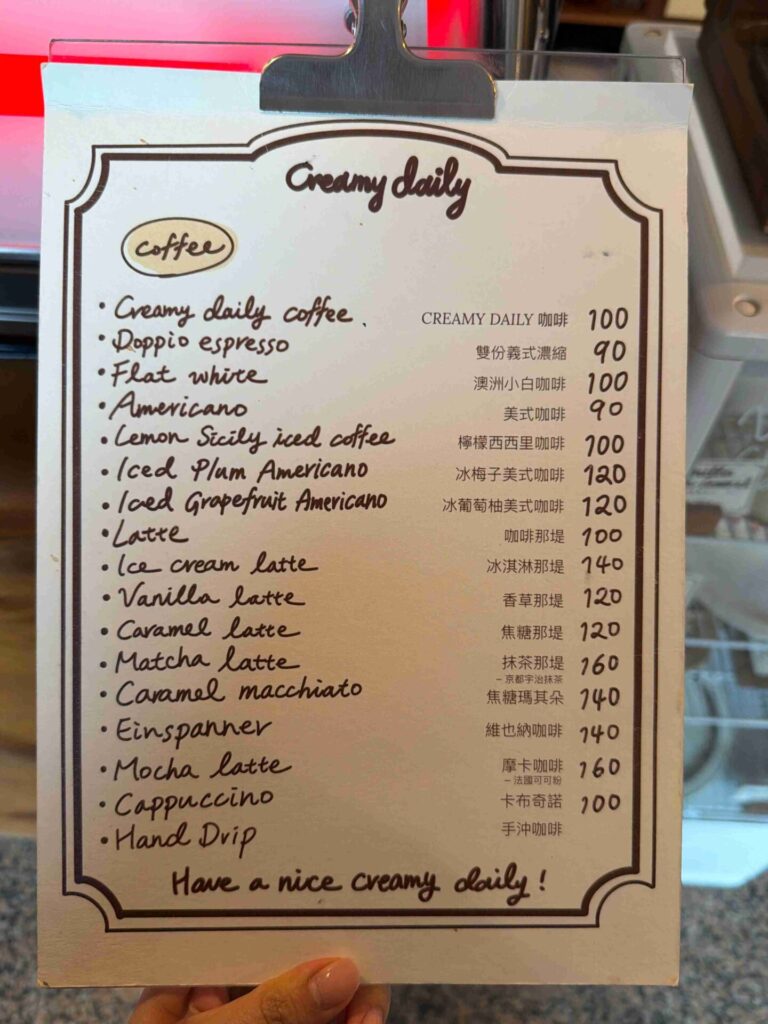 Creamy daily
coffee
• Creamy daily coffee. CREAMY DAILY 咖啡 100
• Doppio espresso 雙份義式濃縮 90
• Flat white 澳洲小白咖啡 100
• Americano 美式咖啡 90
• Lemon Sicily iced coffee 檸檬西西里咖啡 100
• Iced Plum Americano 冰梅子美式咖啡 120
• Iced Grapefruit Americano 冰葡萄柚美式咖啡 120
• Latte 咖啡那堤 100
• Ice cream latte 冰淇淋那堤 140
• Vanilla latte 香草那堤 120
• Caramel latte 焦糖那堤 120
• Matcha latte 抹茶那堤 160
– 京都宇治抹茶
• Caramel macchiato 焦糖瑪其朵 140
• Einspanner 維也納咖啡 140
• Mocha latte 摩卡咖啡 160
– 法國可可粉
• Cappuccino 卡布奇諾 100
• Hand Drip 手沖咖啡
Have a nice creamy daily!